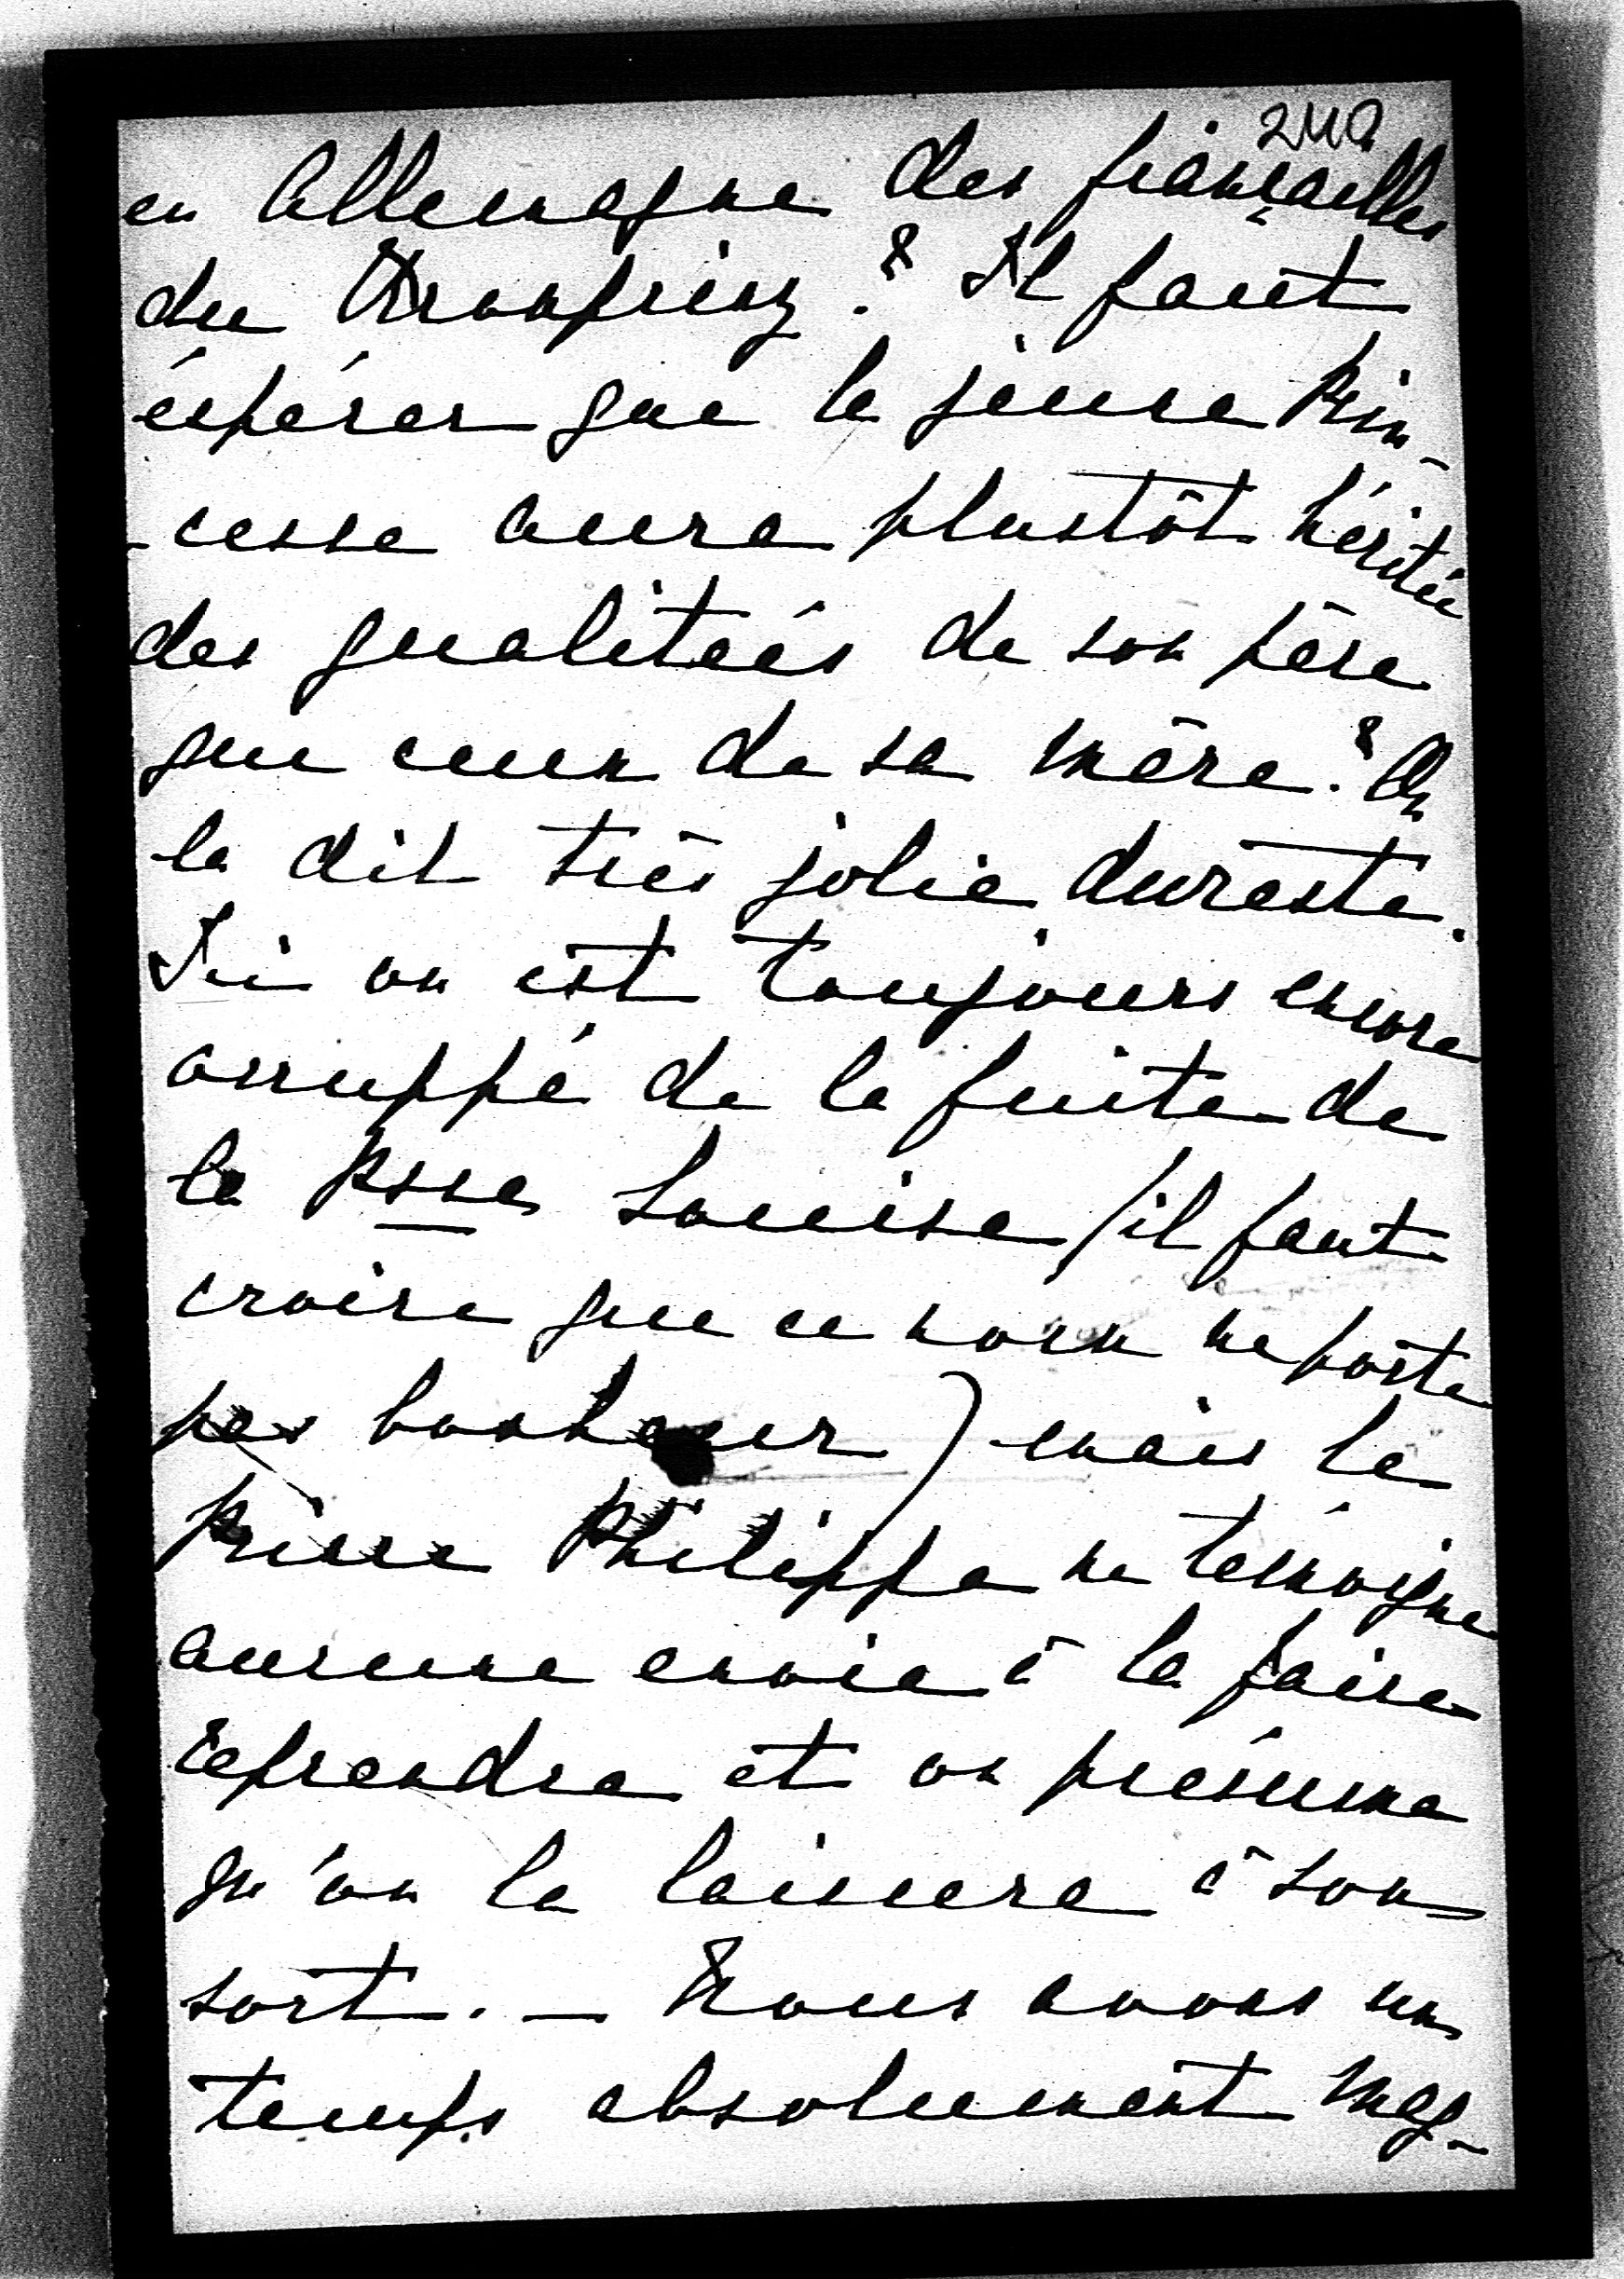 en Allemagne des fiançailles
du Kronprinz? Il faut
éspérer que la jeune Prin-
-cesse aura plustôt héritée
des qualiteés de son père
que ceux de sa mère? On
la dit très jolie dureste.
Ici on est toujours encore
occuppé de la fuite de
la Psse Louise (il faut
croire que ce nom ne porte
pas bonheur) mais le
prince Philippe ne témoigne
aucune envie à la faire
reprendre et on présume
qu'on la laissera à son
sort. – Nous avons un
temps absolument mag-